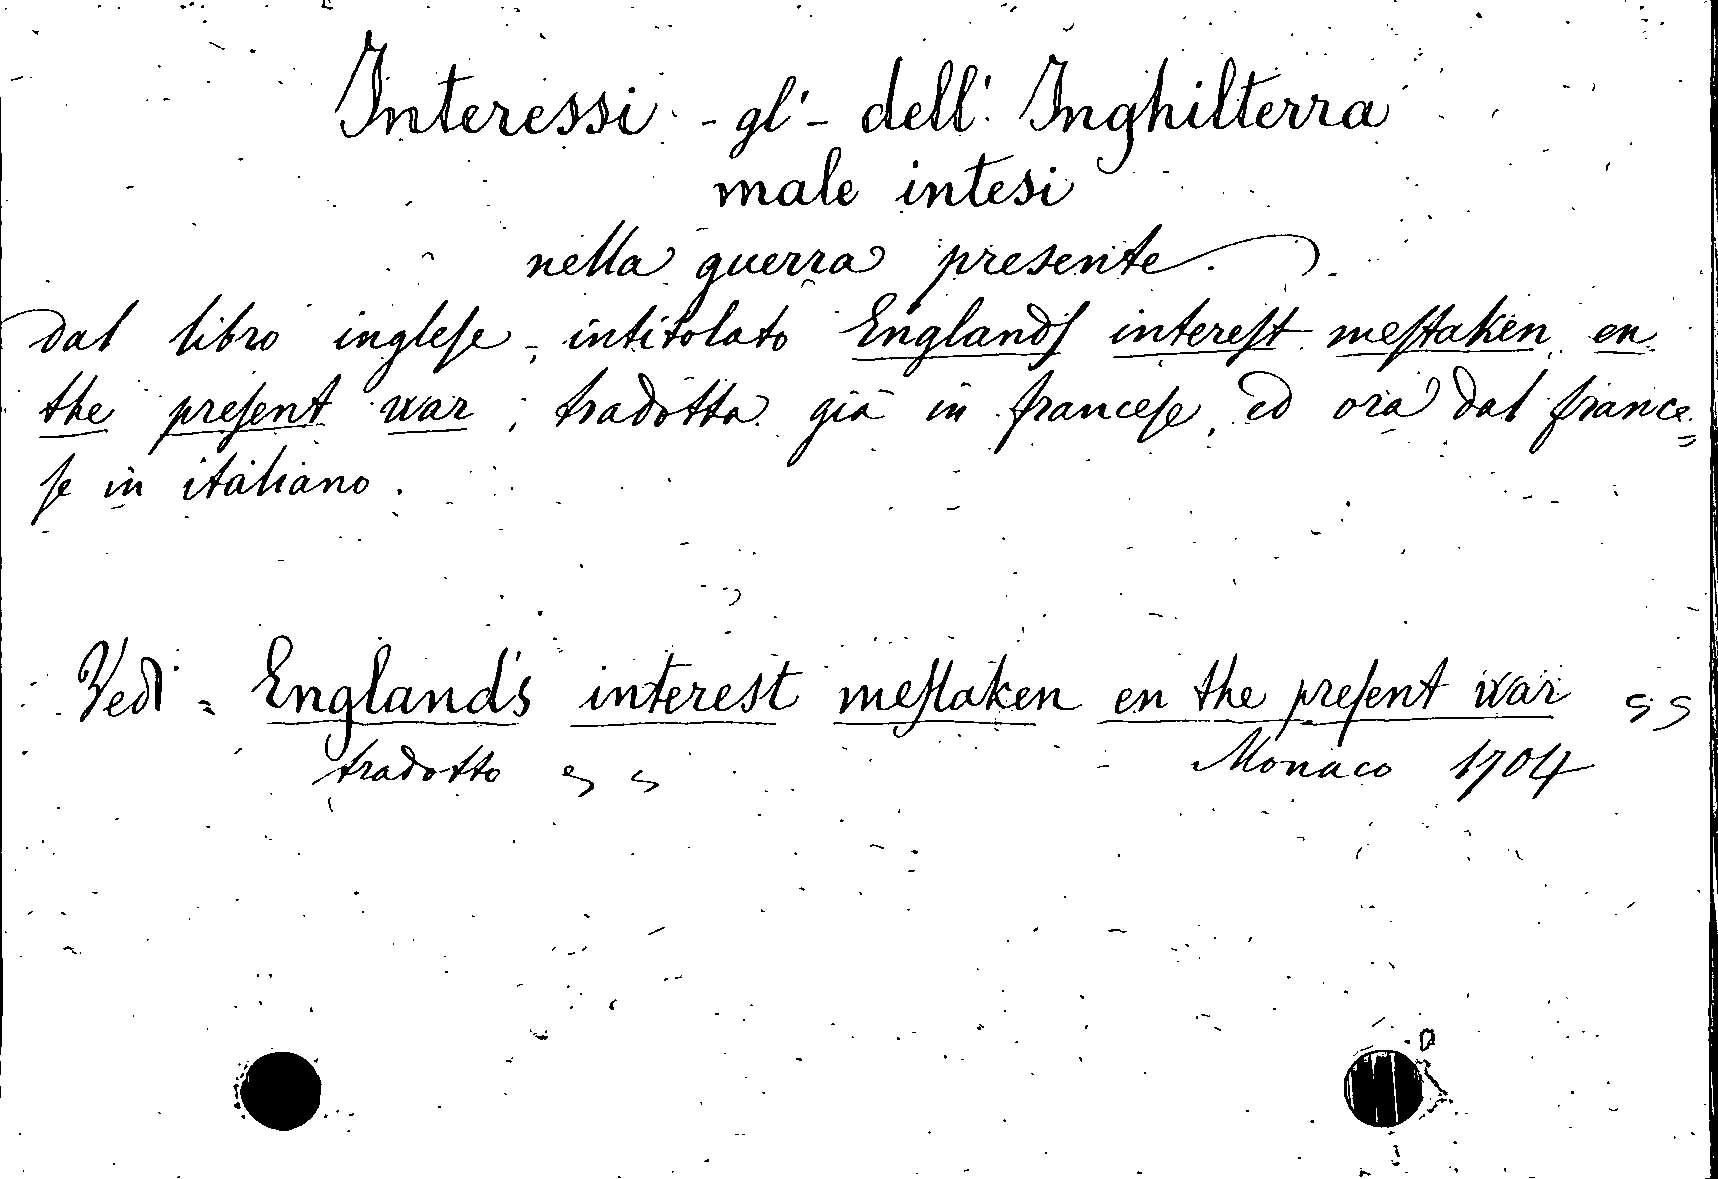 Interessi - gl' - dell' Inghilterra
male intesi
nella guerra presente.
dal libro inglese, intitolato Englands interest mestaken en
the present war; tradotta già in francese, ed ora dal france=
se in italiano.
Vedi = England's interest mestaken en the present war
tradotto Monaco 1704